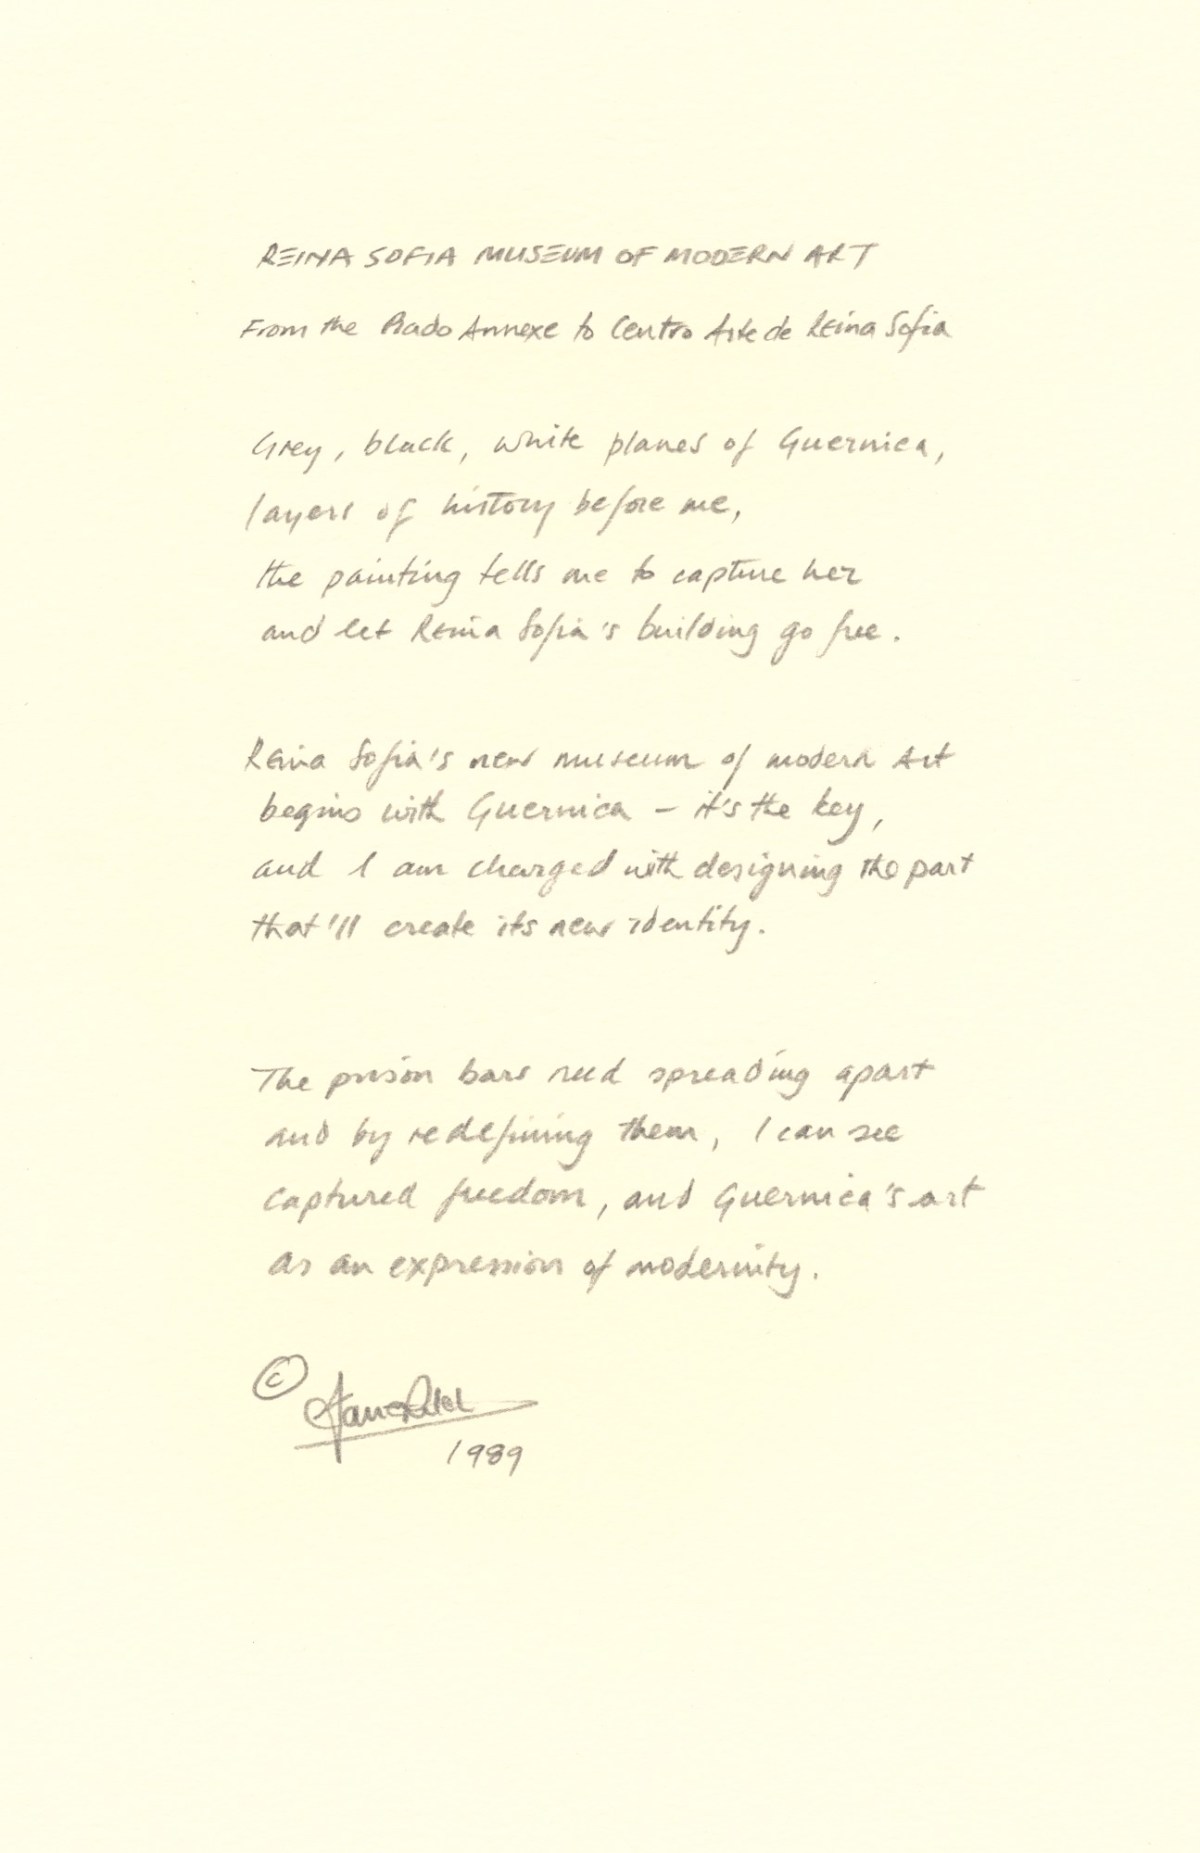 REINA SOFIA MUSEUM OF MODERN ART
From the Prado Annexe to Centro Arte de Reina Sofia
Grey, black, white planes of Guernica,
layers of history before me,
the painting tells me to capture her
and let Reina Sofia's building go free.
Reina Sofia's new museum of modern Art
begins with Guernica – it's the key,
and I am charged with designing the part
that'll create its new identity.
The prison bars need spreading apart
and by redefining them, I can see
captured freedom, and Guernica's art
as an expression of modernity.
©
1989